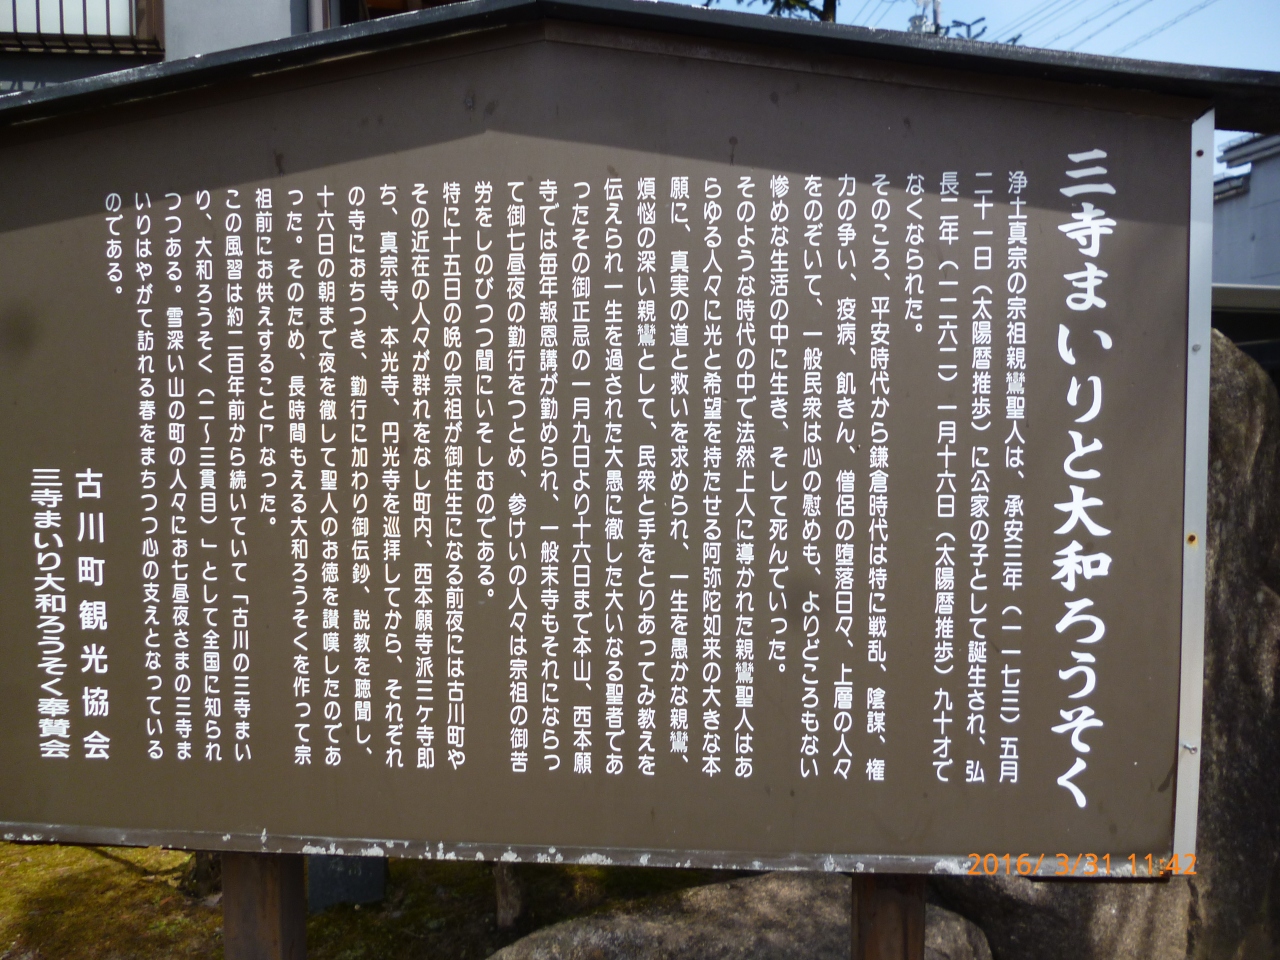 三寺まいりと大和ろうそく
浄土真宗の宗祖親鸞聖人は、承安三年（一一七三）五月
二十一日（太陽暦推歩）に公家の子として誕生され、弘
長二年（一二六二）一月十六日（太陽暦推歩）九十才で
なくなられた。
そのころ、平安時代から鎌倉時代は特に戦乱、陰謀、権
力の争い、疫病、飢きん、僧侶の堕落日々、上層の人々
をのぞいて、一般民衆は心の慰めも、よりどころもない
惨めな生活の中に生き、そして死んでいった。
そのような時代の中で法然上人に導かれた親鸞聖人はあ
らゆる人々に光と希望を持たせる阿弥陀如来の大きな本
願に、真実の道と救いを求められ、一生を愚かな親鸞、
煩悩の深い親鸞として、民衆と手をとりあってみ教えを
伝えられ一生を過された大愚に徹した大いなる聖者であ
ったその御正忌の一月九日より十六日まで本山、西本願
寺では毎年報恩講が勤められ、一般末寺もそれにならっ
て御七昼夜の勤行をつとめ、参けいの人々は宗祖の御苦
労をしのびつつ聞にいそしむのである。
特に十五日の晩の宗祖が御往生になる前夜には古川町や
その近在の人々が群れをなし町内、西本願寺派三ケ寺即
ち、真宗寺、本光寺、円光寺を巡拝してから、それぞれ
の寺におちつき、勤行に加わり御伝鈔、説教を聴聞し、
十六日の朝まで夜を徹して聖人のお徳を讃嘆したのであ
った。そのため、長時間もえる大和ろうそくを作って宗
祖前にお供えすることになった。
この風習は約二百年前から続いていて「古川の三寺まい
り、大和ろうそく（二〜三貫目）」として全国に知られ
つつある。雪深い山の町の人々にお七昼夜さまの三寺ま
いりはやがて訪れる春をまちつつ心の支えとなっている
のである。
古川町観光協会
三寺まいり大和ろうそく奉賛会
2016/ 3/31 11:42